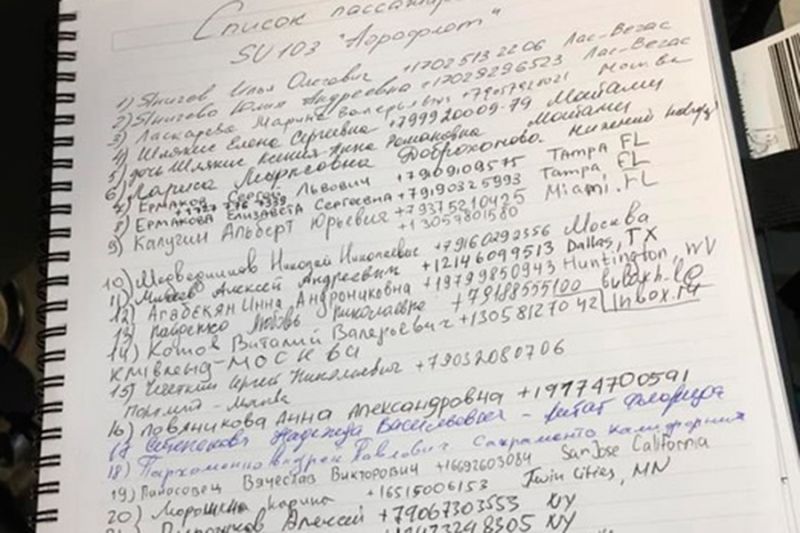 Список пассажиров
SU 103 "Аэрофлот"
1) Янигов Илья Олегович +17025132206 Лас-Вегас
2) Янигова Юлия Андреевна +17029296523 Лас-Вегас
3) Ласкарева Марина Валерьевна Москва
4) Шлякис Елена Сергеевна +79992000979 Майами
5) дочь Шлякис Ксения-Анна Романовна Майами
6) Лариса Марксовна Доброхотова. Нижний
7) Ермаков Сергей Львович +79109109575 Tampa FL
+1727 776 9339
8) Ермакова Елизавета Сергеевна +79190325993 Tampa, FL
9) Калугин Альберт Юрьевич +79375210425 Miami. FL
+13057801580
10) Медведников Николай Николаевич +79160292356 Москва
11) Алексей Андреевич +12146099513 Dallas, TX
12) Агабекян Инна Андрониковна +19799850943 Huntington, WV
13) Любовь Николаевна +79188555100
14) Котов Виталий Валерьевич +13058127042 inbox.ru
Москва
15) Сергей Николаевич +79032080706
16) Ловяникова Анна Александровна +19174700591
17) Надежда Васильевна - Флорида
18) Пархоменко Андрей Павлович. Сакраменто Калифорния
19) Паносовец Вячеслав Викторович +16692603084 San Jose California
20) Морошкина Карина +16515006153 Twin Cities, MN
Алексей +79067303553 NY
8305 NY